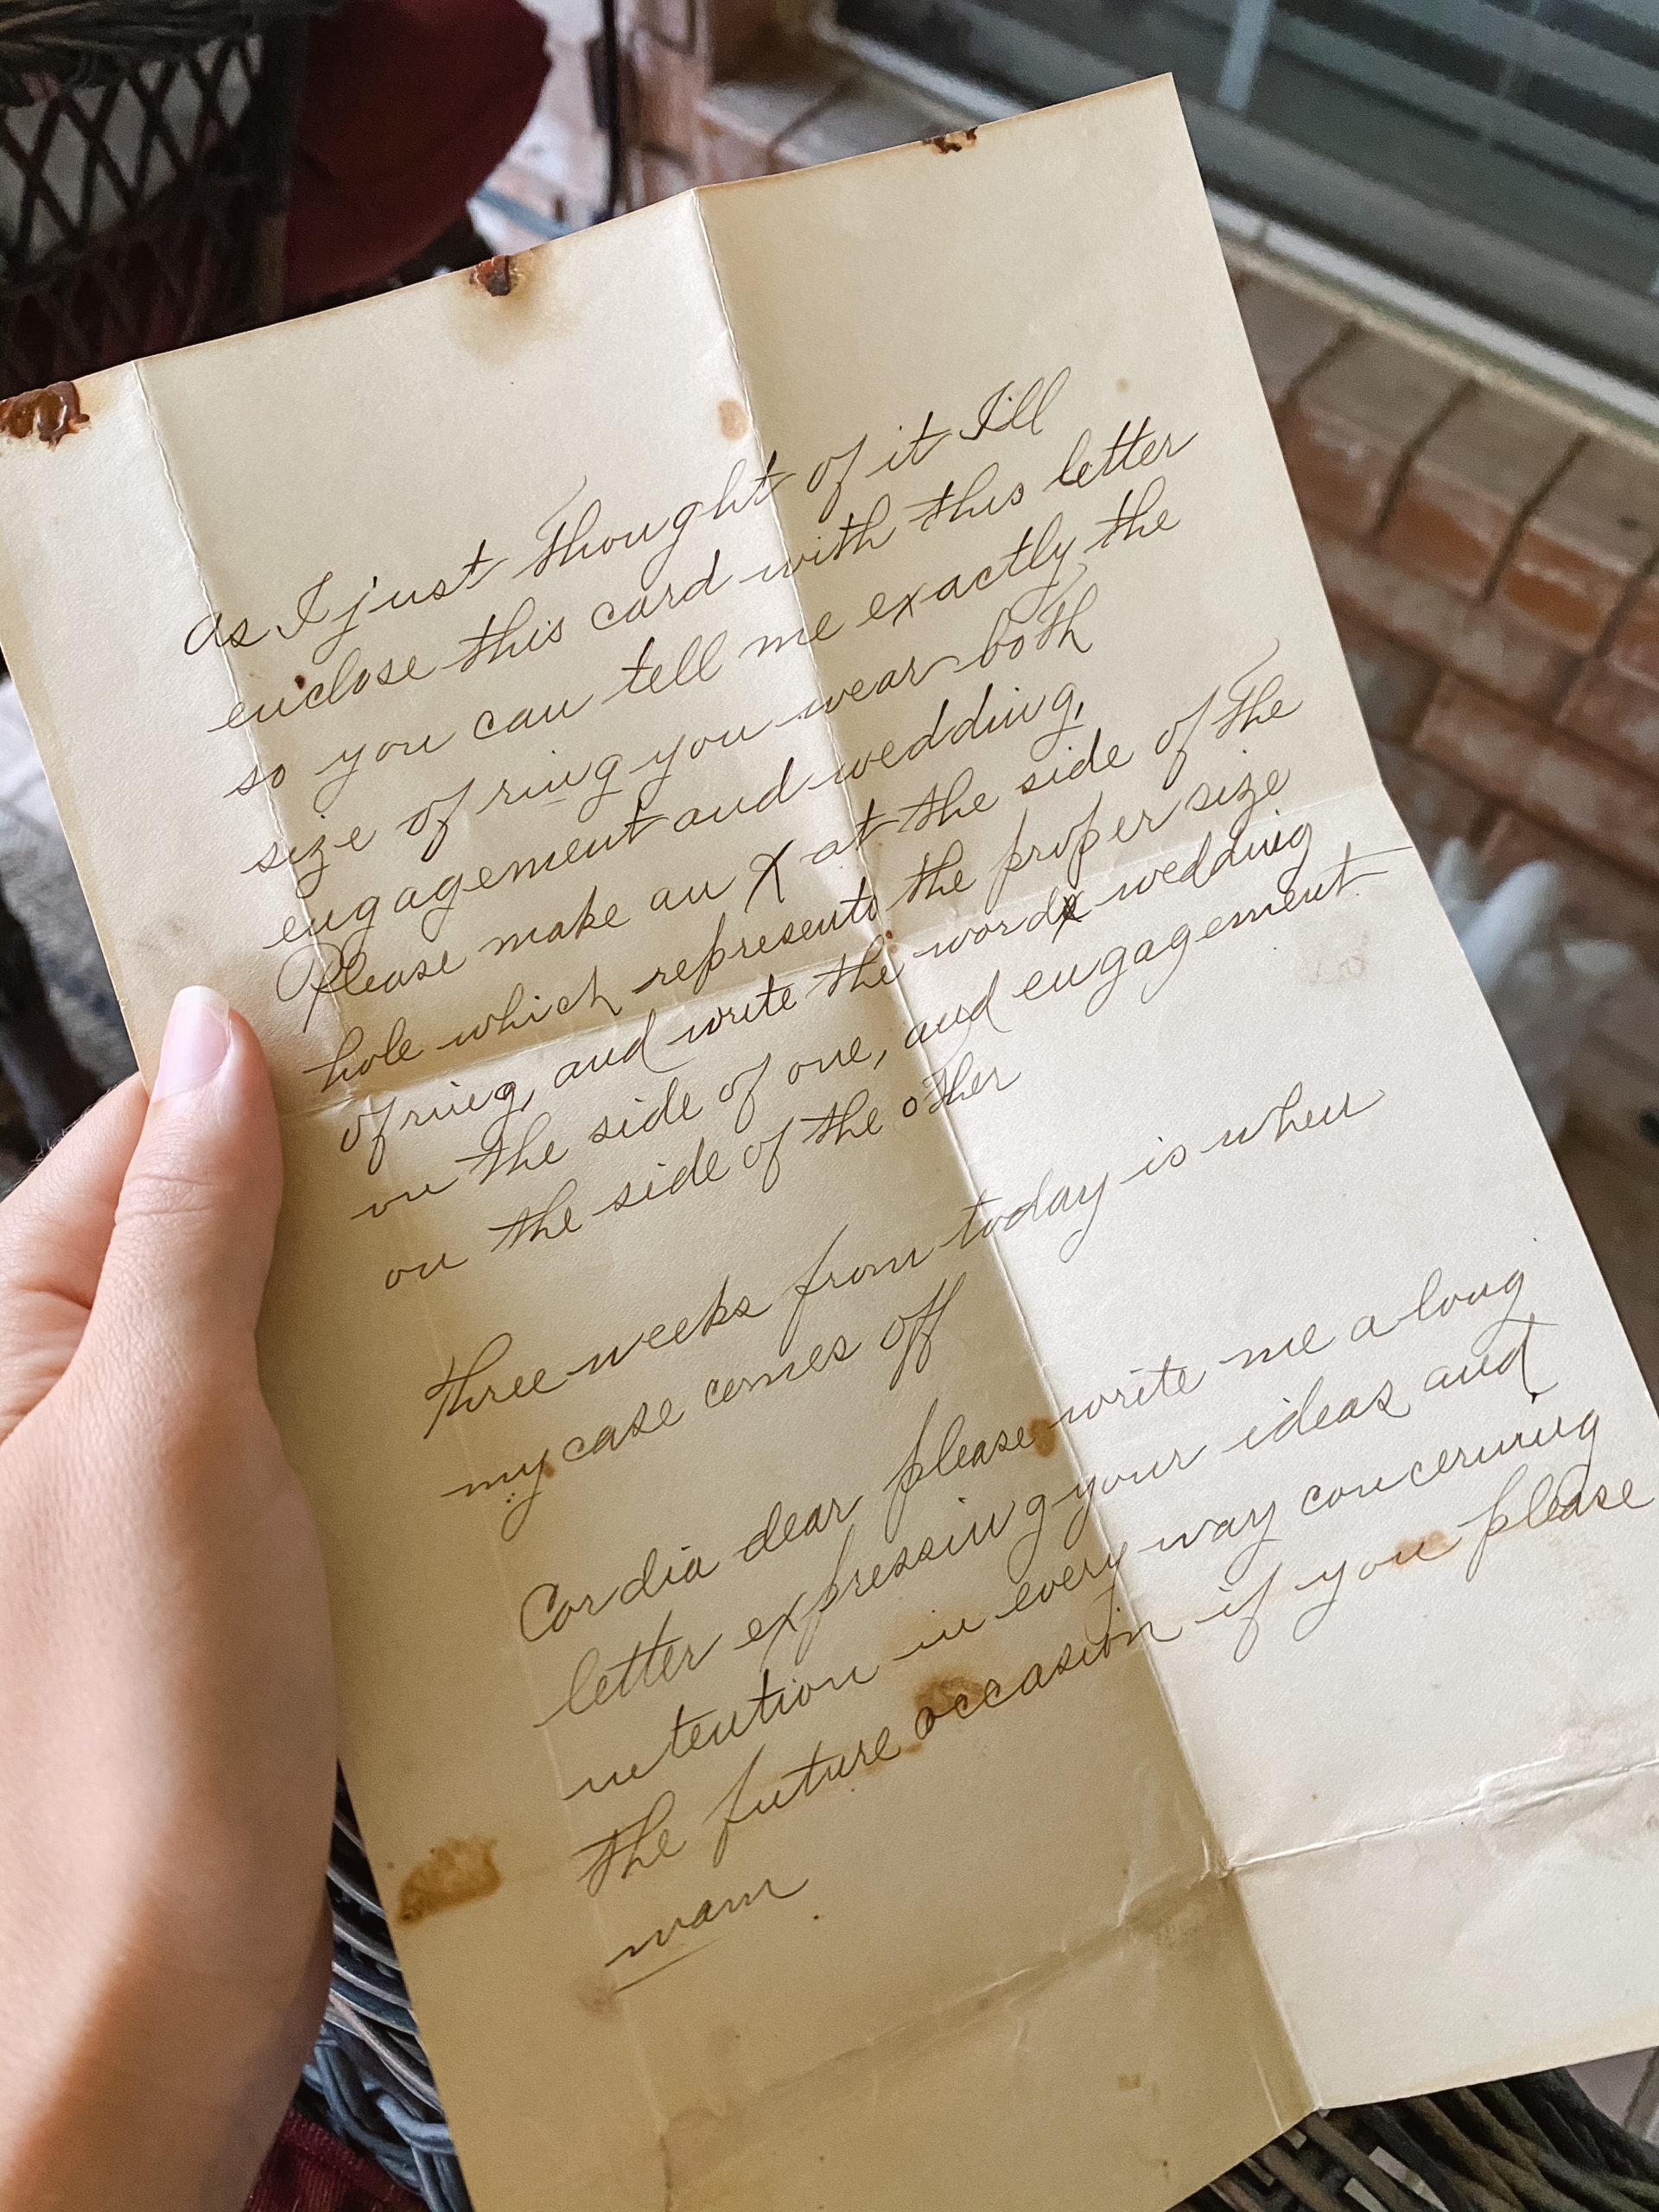 as I just thought of it Ill
enclose this card with this letter
so you can tell me exactly the
size of ring you wear both
engagement and wedding,
Please make an X at the side of the
hole which represents the proper size
of ring, and write the word wedding
on the side of one, and engagement
on the side of the other
Three weeks from today is when
my case comes off
Cordia dear please write me a long
letter expressing your ideas and
intention in every way concerning
the future occasion if you please
mam